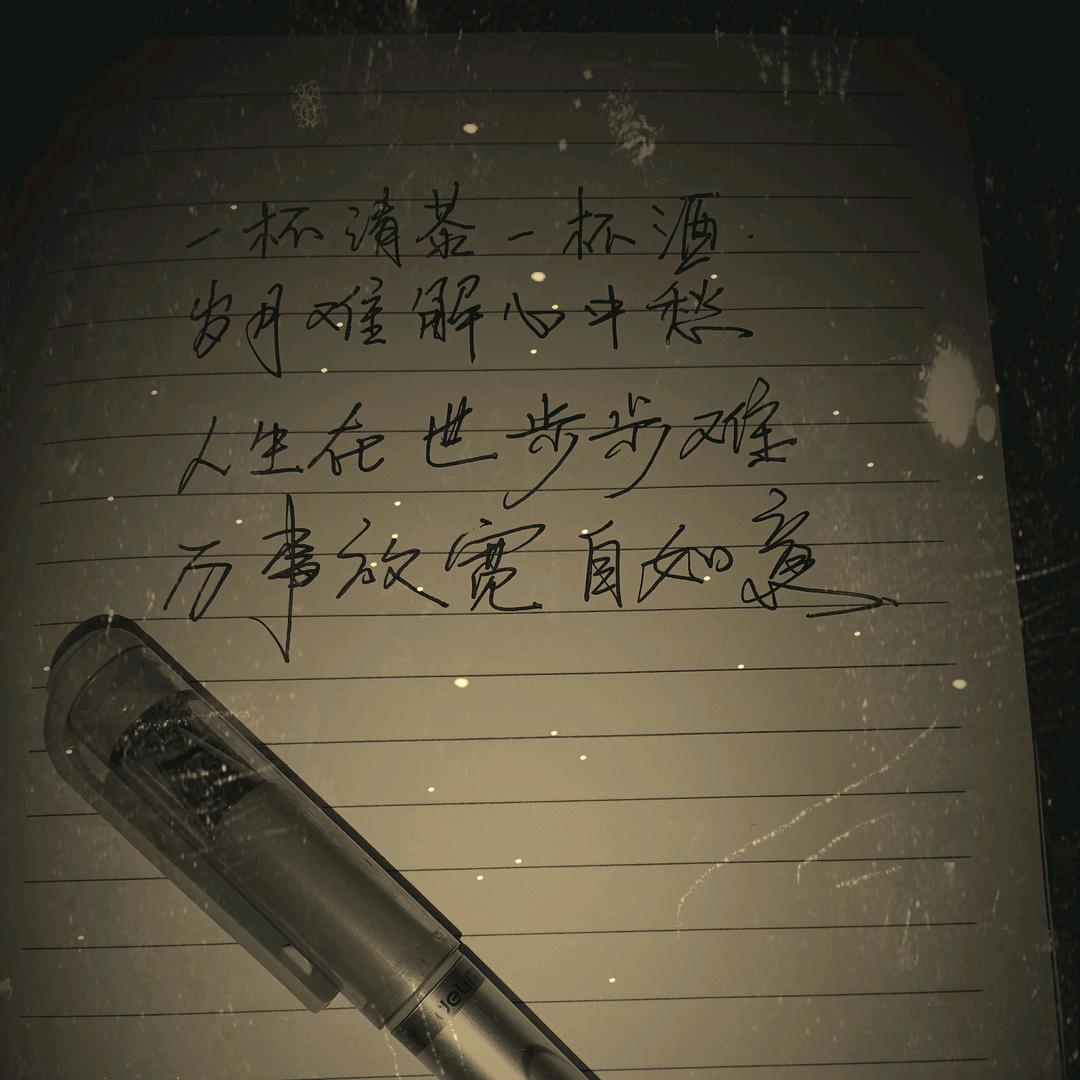 一杯清茶一杯酒.
岁月难解心中愁
人生在世步步难
万事放宽自如意
deli